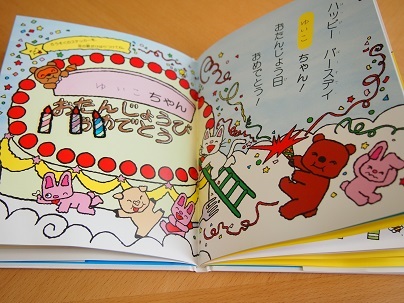 ゆいこ ちゃん
おたんじょうび
おめでとう
ハッピー バースディ
ゆいこ ちゃん！
おたんじょう日
おめでとう！